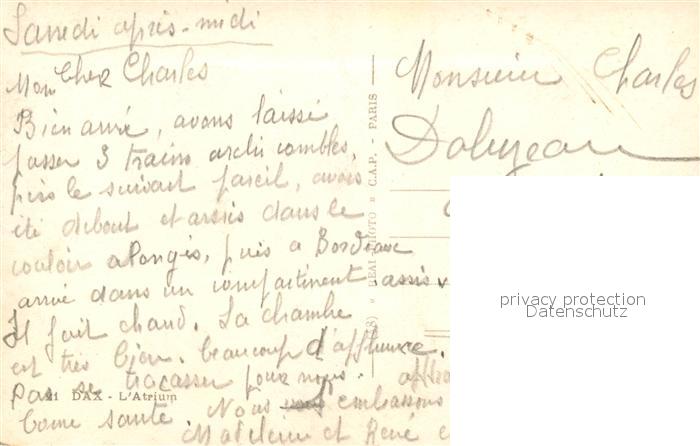 Samedi après-midi
Mon Cher Charles
Bien arrivé, avons laissé
passer 3 trains archi combles,
pris le suivant pareil, avons
été debout et assis dans le
couloir alongés, puis a Bordeaux
arrivé dans un compartiment assis
Il fait chaud. La chambre
est très bien. beaucoup d'affluence.
Pas se tracasser pour nous.
21 DAX - L'Atrium
bonne santé. Nous vous embrassons
Madeleine et René
(38) * REAL-PHOTO * C.A.P. - PARIS
Monsieur Charles
privacy protection
Datenschutz